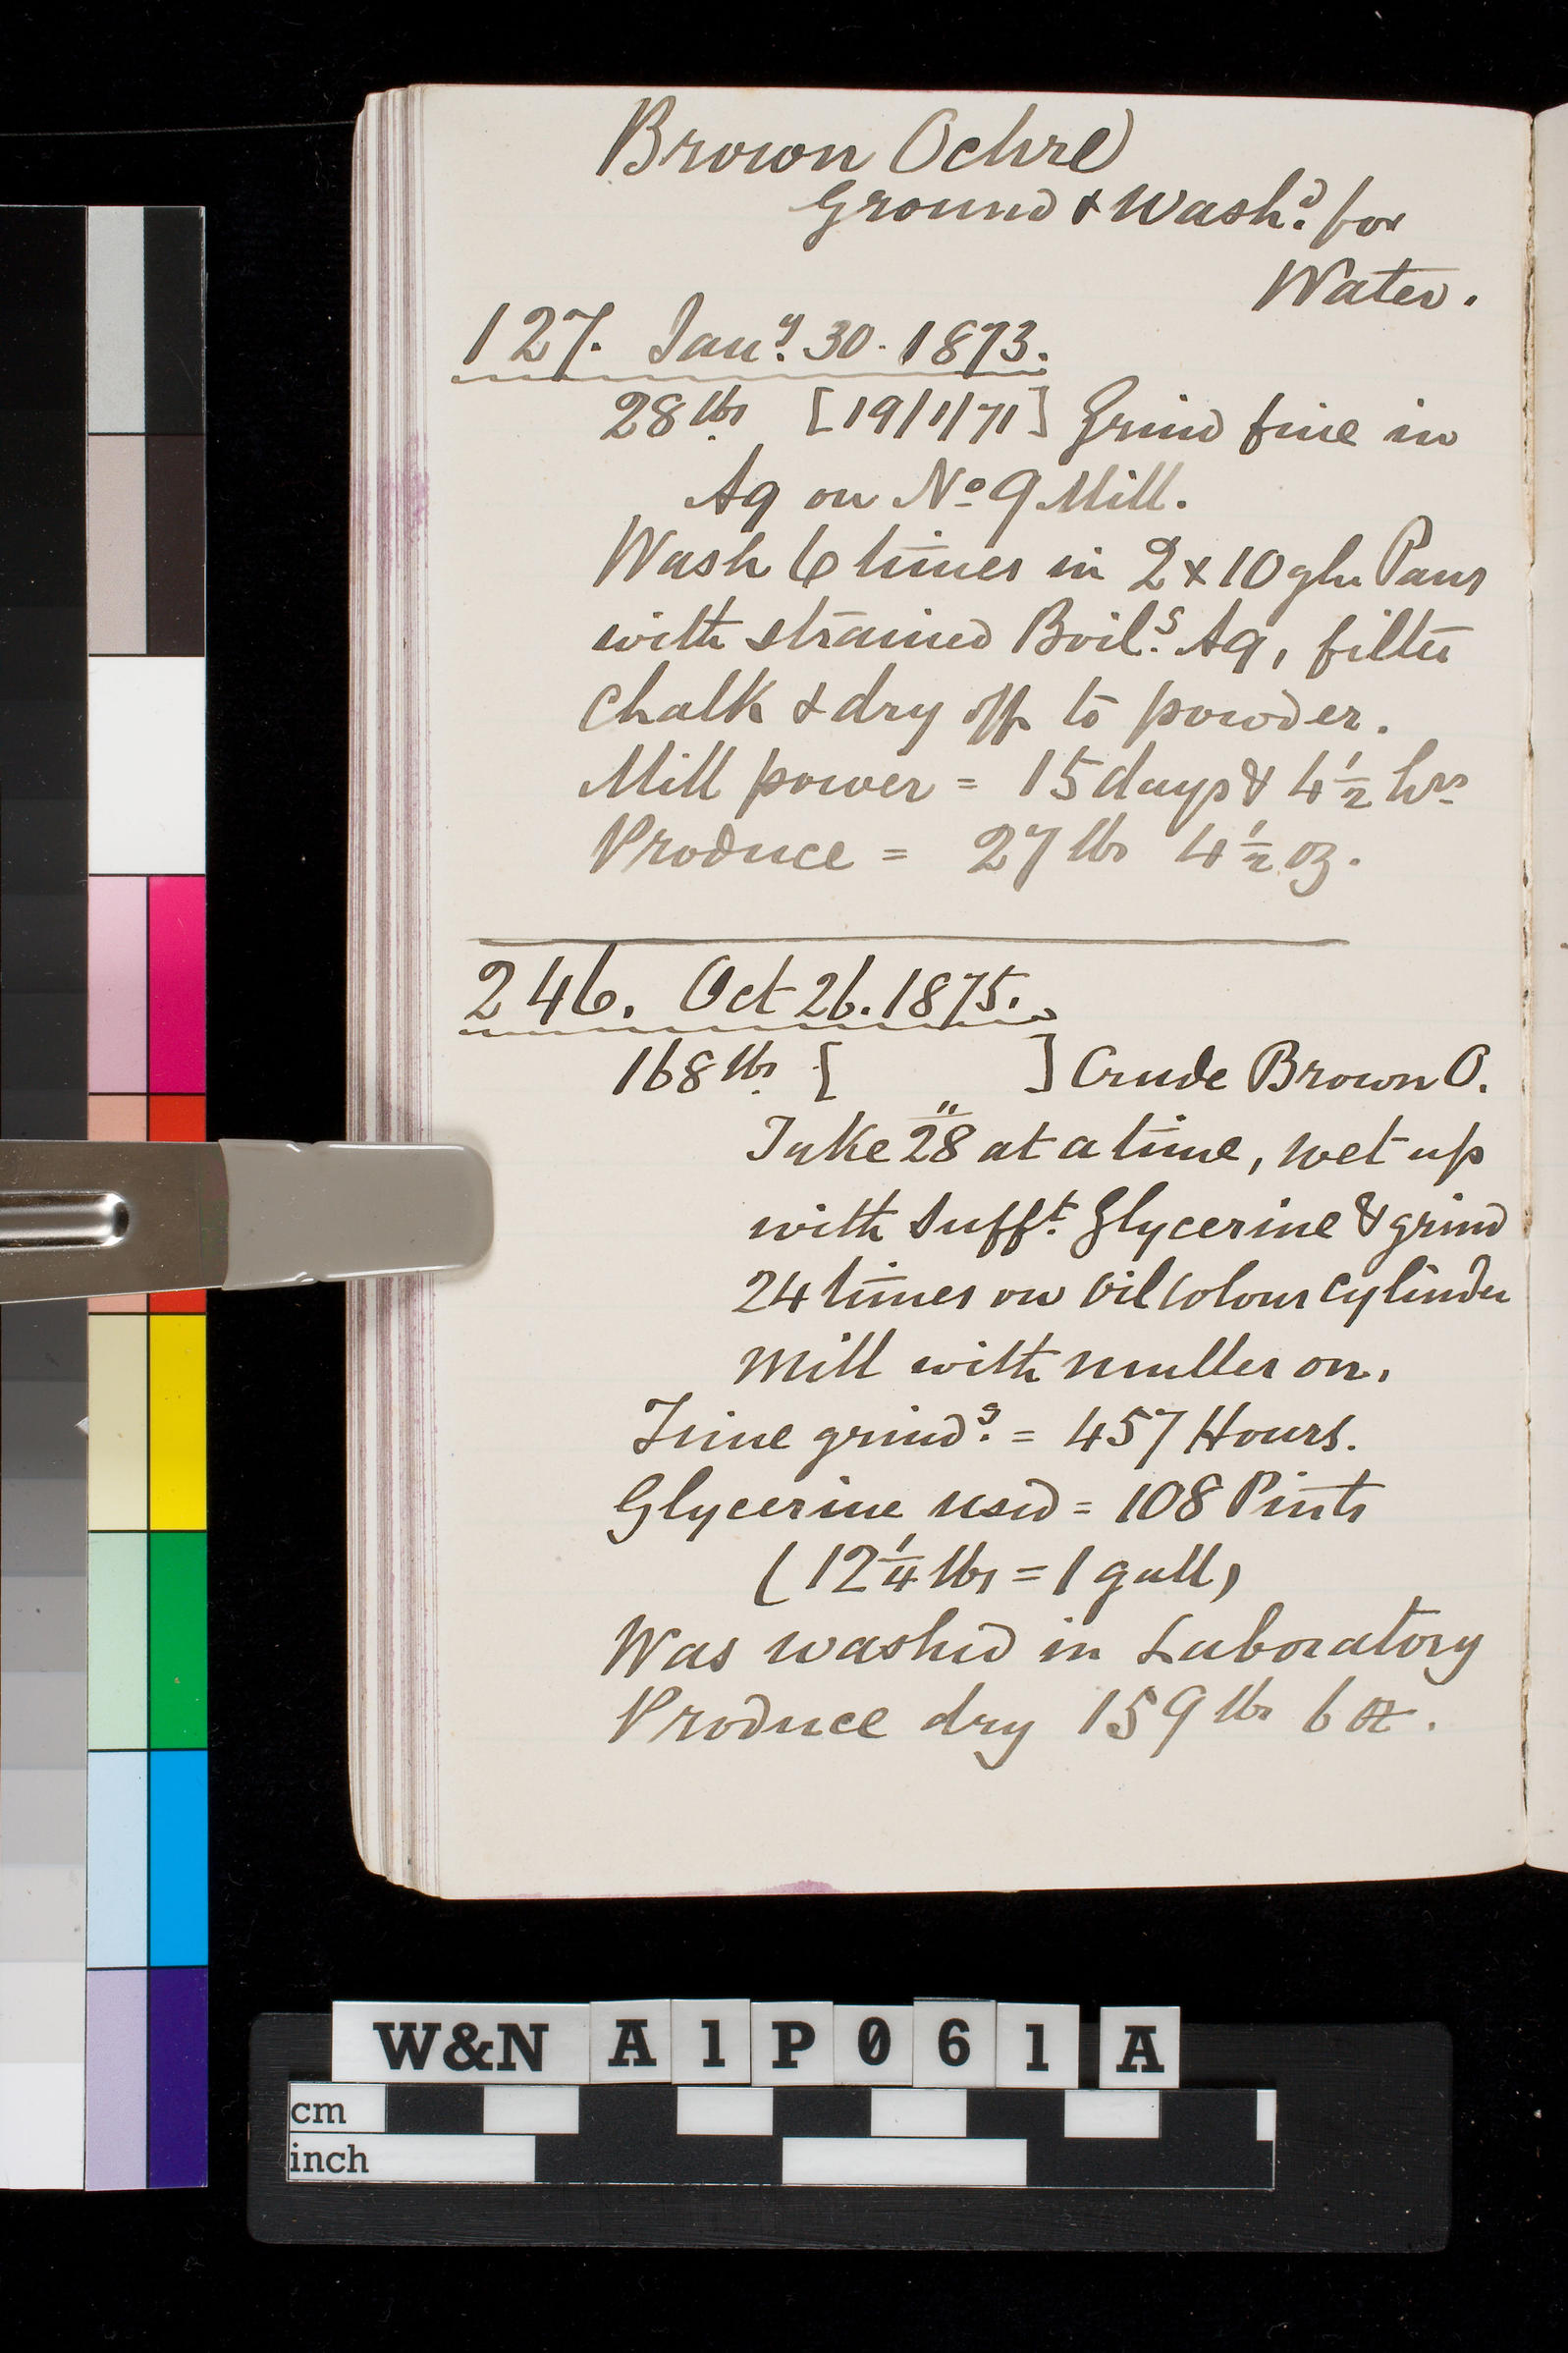 Brown Ochre
Ground & Wash.d for
Water.
127. Jan.y 30. 1873.
28 lbs [19/1/71] Grind fine in
Aq on No 9 Mill.
Wash 6 times in 2 x 10 gln Pans
with strained Boil.g Aq, filter
chalk & dry off to powder.
Mill power = 15 days & 4 1/2 hrs
Produce = 27 lbs 4 1/2 oz.
246. Oct 26. 1875.
168 lbs [ ] Crude Brown O.
Take 28" at a time, wet up
with Suff.t Glycerine & grind
24 times on Oil Colour Cylinder
Mill with muller on.
Time grind.g = 457 Hours.
Glycerine used = 108 Pints
(12 1/4 lbs = 1 gall)
Was washed in Laboratory
Produce dry 159 lbs 6 oz.
W&N A1P061A
cm
inch